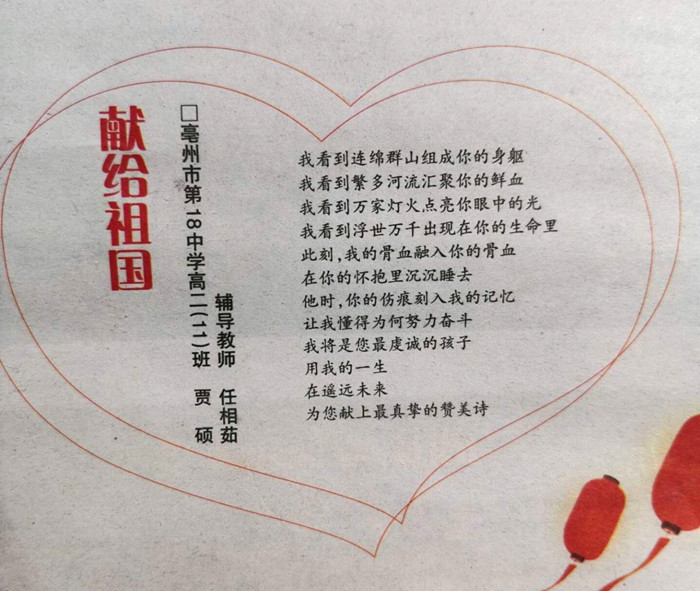 献给祖国
□亳州市第18中学高二(11)班 贾 硕
辅导教师 任相茹
我看到连绵群山组成你的身躯
我看到繁多河流汇聚你的鲜血
我看到万家灯火点亮你眼中的光
我看到浮世万千出现在你的生命里
此刻,我的骨血融入你的骨血
在你的怀抱里沉沉睡去
他时,你的伤痕刻入我的记忆
让我懂得为何努力奋斗
我将是您最虔诚的孩子
用我的一生
在遥远未来
为您献上最真挚的赞美诗